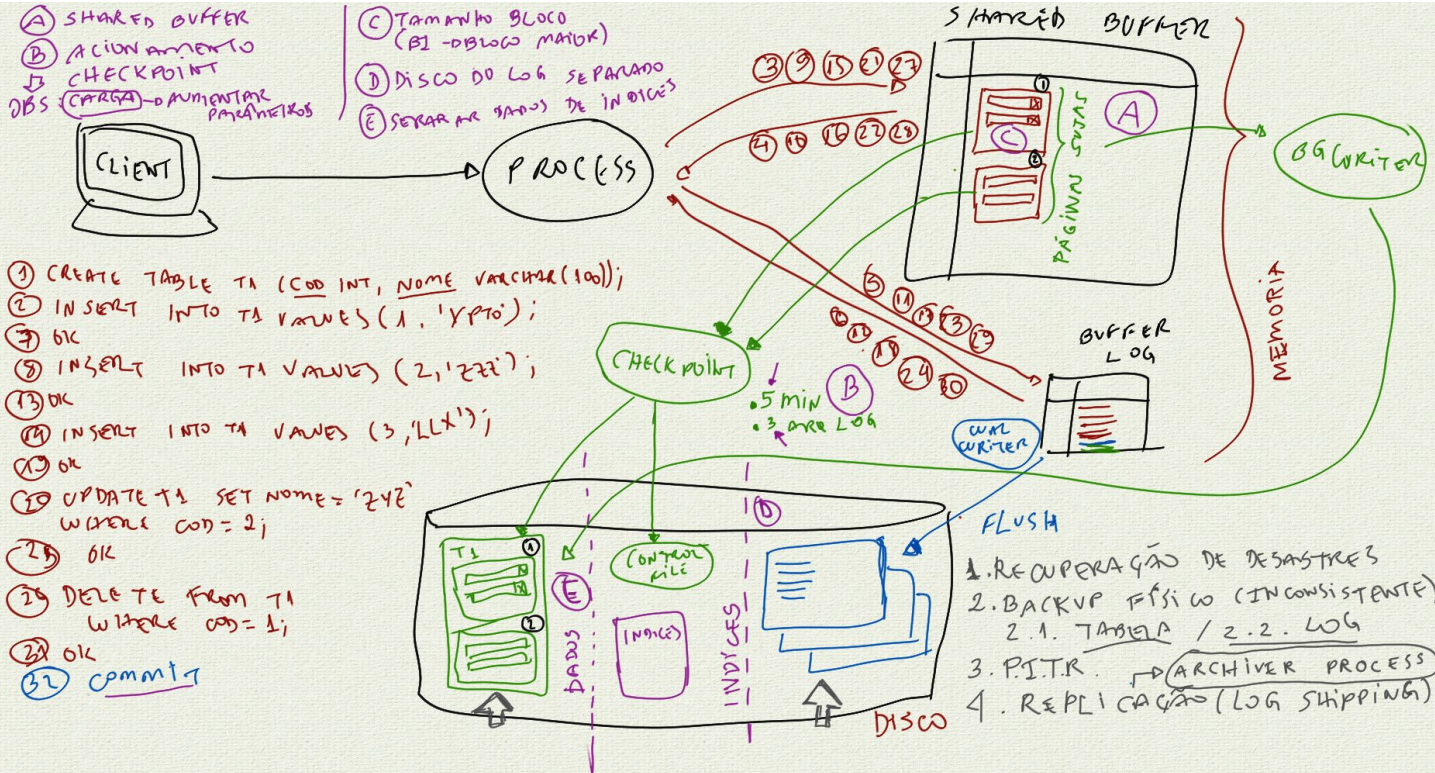 (A) SHARED BUFFER
(B) ACIONAMENTO
CHECKPOINT
OBS: CARGA → AUMENTAR
PARÂMETROS
(C) TAMANHO BLOCO
(BI → BLOCO MAIOR)
(D) DISCO DO LOG SEPARADO
(E) SEPARAR DADOS DE ÍNDICES
CLIENT
PROCESS
3 9 15 21 27
4 10 16 22 28
SHARED BUFFER
1
A
C
2
PÁGINAS SUJAS
BGWRITER
MEMORIA
5 11 17 23 29
6 12 18 24 30
BUFFER
LOG
WAL
WRITER
FLUSH
(1) CREATE TABLE T1 (COD INT, NOME VARCHAR(100));
(2) INSERT INTO T1 VALUES (1, 'YPTO');
(7) OK
(8) INSERT INTO T1 VALUES (2, 'ZZZ');
(13) OK
(14) INSERT INTO T1 VALUES (3, 'LLX');
(19) OK
(20) UPDATE T1 SET NOME = 'ZYZ'
WHERE COD = 2;
(25) OK
(26) DELETE FROM T1
WHERE COD = 1;
(31) OK
(32) COMMIT
CHECKPOINT
.5 MIN
B
.3 ARQ LOG
T1
1
2
E
DADOS
CONTROL
FILE
INDICES
INDYCES
D
DISCO
1. RECUPERAÇÃO DE DESASTRES
2. BACKUP FÍSICO (INCONSISTENTE)
2.1. TABELA / 2.2. LOG
3. P.I.T.R. → ARCHIVER PROCESS
4. REPLICAÇÃO (LOG SHIPPING)